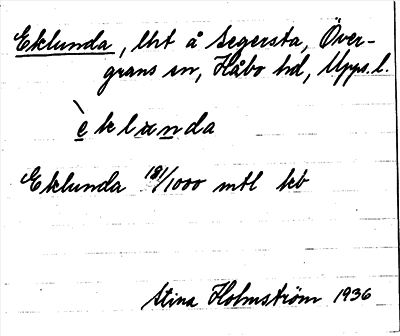 Eklunda, lht å Segersta, Över-
grans sn, Håbo hd, Upps. l.
èklunda
Eklunda 181/1000 mtl kb
Stina Holmström 1936